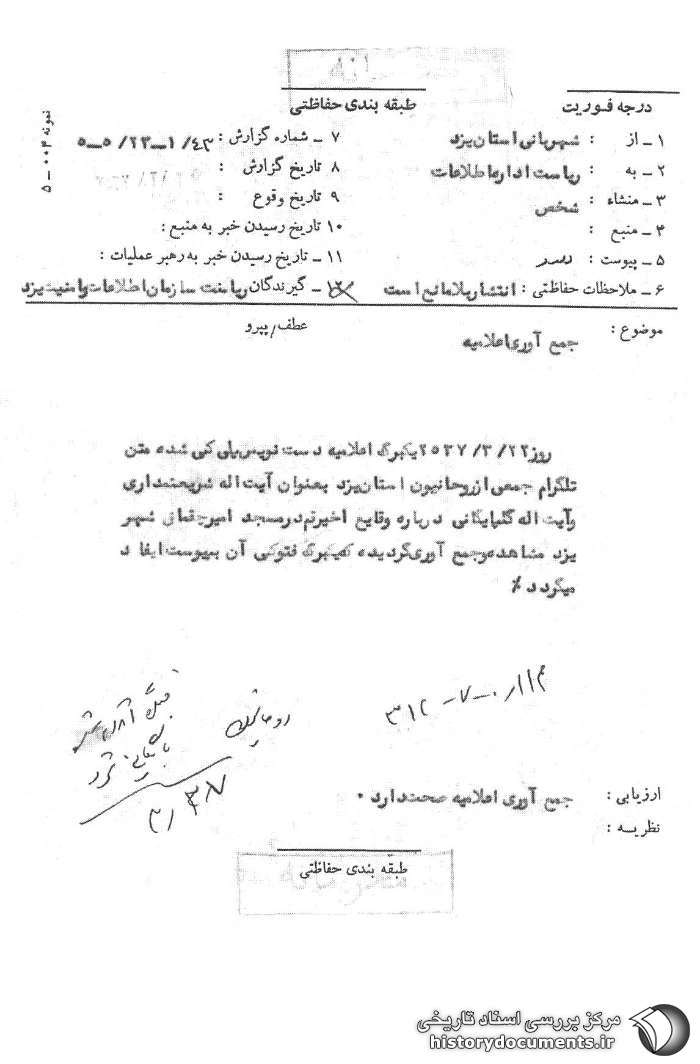 درجه فوریت
طبقه بندی حفاظتی
نمونه ۰۰۴ - ۵
۱ - از : شهربانی استان یزد
۷ - شماره گزارش : ۵ - ۵ /۲۳ - ۱ /۴۳
۲ - به : ریاست اداره اطلاعات
۸ تاریخ گزارش :
۳ - منشاء : شخص
۹ تاریخ وقوع :
۴ - منبع :
۱۰ تاریخ رسیدن خبر به منبع :
۵ - پیوست :
۱۱ - تاریخ رسیدن خبر به رهبر عملیات :
۶ - ملاحظات حفاظتی : انتشار بلامانع است
۱۲ - گیرندگان ریاست سازمان اطلاعات و امنیت یزد
موضوع : جمع آوری اعلامیه
عطف/پیرو
روز ۲۲/ ۳/ ۲۵۳۷ یکبرگ اعلامیه دست نویس پلی کپی شده متن
تلگرام جمعی از روحانیون استان یزد بعنوان آیت اله شریعتمداری
و آیت اله گلپایگانی درباره وقایع اخیر قم در مسجد امیرچقماق شهر
یزد مشاهده و جمع آوری گردیده که یکبرگ فتوکپی آن به پیوست ایفا د
میگرد د ٪
روحانیون
بایگانی شود
۳۱۲
ارزیابی : جمع آوری اعلامیه صحت دارد ۰
نظریه :
طبقه بندی حفاظتی
مرکز بررسی اسناد تاریخی
historydocuments.ir